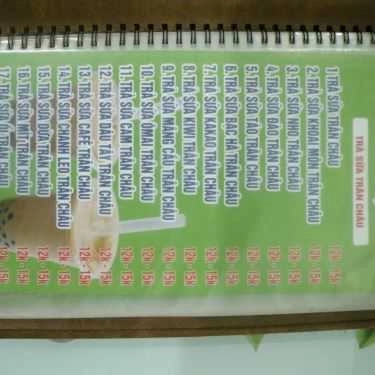 TRÀ SỮA TRÂN CHÂU
1. TRÀ SỮA TRÂN CHÂU 12k - 15k
2. TRÀ SỮA THẬP CẨM TRÂN CHÂU 12k - 15k
3. TRÀ SỮA TRÂN CHÂU 12k - 15k
4. TRÀ SỮA ĐÀO TRÂN CHÂU 12k - 15k
5. TRÀ SỮA TÁO TRÂN CHÂU 12k - 15k
6. TRÀ SỮA BẠC HÀ TRÂN CHÂU 12k - 15k
7. TRÀ SỮA CACAO TRÂN CHÂU 12k - 15k
8. TRÀ SỮA KIWI TRÂN CHÂU 12k - 15k
9. TRÀ SỮA TRÂN CHÂU 12k - 15k
10. TRÀ SỮA ÔMAI TRÂN CHÂU 12k - 15k
11. TRÀ SỮA CAM TRÂN CHÂU 12k - 15k
12. TRÀ SỮA DÂU TÂY TRÂN CHÂU 12k - 15k
13. TRÀ SỮA CAFÉ TRÂN CHÂU 12k - 15k
14. TRÀ SỮA CHANH LEO TRÂN CHÂU 12k - 15k
15. TRÀ SỮA TRÂN CHÂU 12k - 15k
16. TRÀ SỮA MÍT TRÂN CHÂU 12k - 15k
17. TRÀ SỮA TRÂN CHÂU 12k - 15k